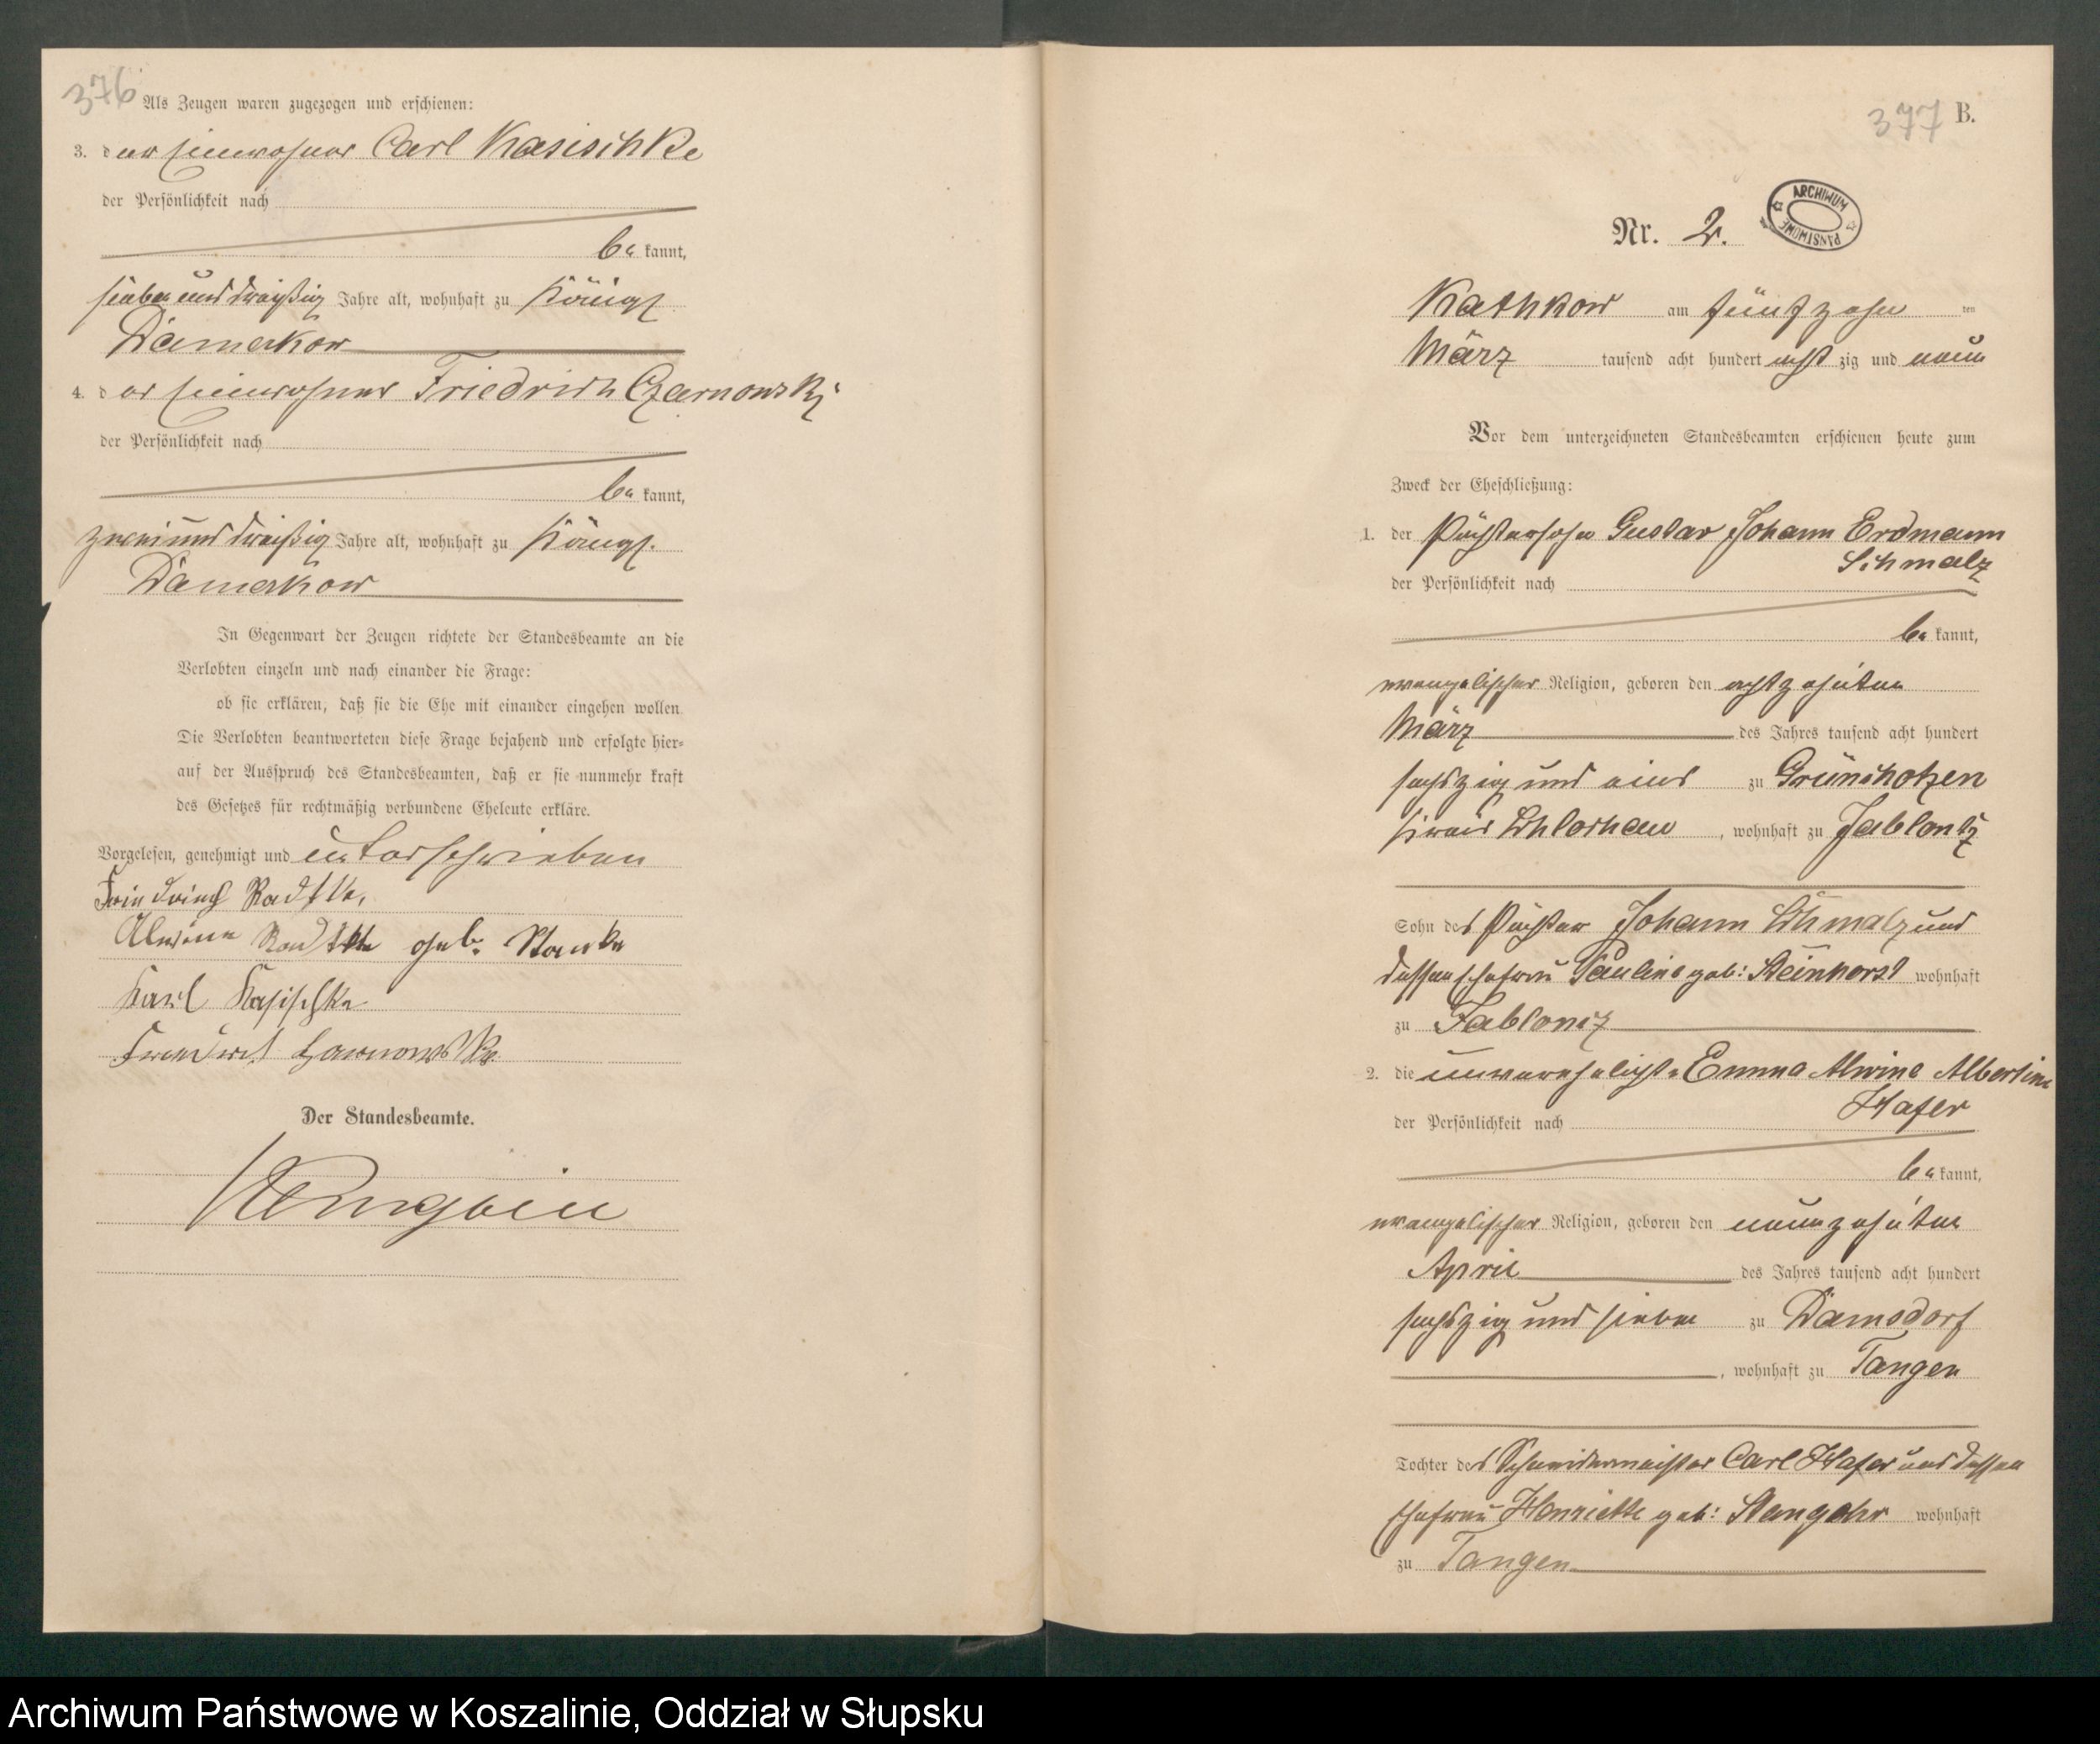 376
Als Zeugen waren zugezogen und erschienen:
3. der Einwohner Carl Kasischke
der Persönlichkeit nach
be kannt,
sieben und dreißig Jahre alt, wohnhaft zu Königl.
Damerkow
4. der Einwohner Friedrich Czarnowski
der Persönlichkeit nach
be kannt,
zwei und dreißig Jahre alt, wohnhaft zu Königl.
Damerkow
In Gegenwart der Zeugen richtete der Standesbeamte an die
Verlobten einzeln und nach einander die Frage:
ob sie erklären, daß sie die Ehe mit einander eingehen wollen.
Die Verlobten beantworteten diese Frage bejahend und erfolgte hier-
auf der Ausspruch des Standesbeamten, daß er sie nunmehr kraft
des Gesetzes für rechtmäßig verbundene Eheleute erkläre.
Vorgelesen, genehmigt und unterschrieben
Friedrich Radtke
Alwine Radtke geb.
Karl Kasischke
Der Standesbeamte.
377 B.
Nr. 2.
ARCHIWUM PAŃSTWOWE
Kathkow am fünfzehn ten
März tausend acht hundert acht zig und neun
Vor dem unterzeichneten Standesbeamten erschienen heute zum
Zweck der Eheschließung:
1. der Pächtersohn Gustav Johann Erdmann
Schmalz
der Persönlichkeit nach
be kannt,
evangelischer Religion, geboren den achtzehnten
März des Jahres tausend acht hundert
sechszig und eins zu Grünchotzen
Kreis Schlochau, wohnhaft zu Jablontz
Sohn des Pächter Johann Schmalz und
dessen Ehefrau Pauline geb: Steinhorst wohnhaft
zu Jablontz
2. die unverehelichte Emma Alwine Albertine
Hafer
der Persönlichkeit nach
be kannt,
evangelischer Religion, geboren den neunzehnten
April des Jahres tausend acht hundert
sechszig und sieben zu Damsdorf
, wohnhaft zu Tangen
Tochter des Schneidermeister Carl Hafer und dessen
Ehefrau Henriette geb: wohnhaft
zu Tangen
Archiwum Państwowe w Koszalinie, Oddział w Słupsku